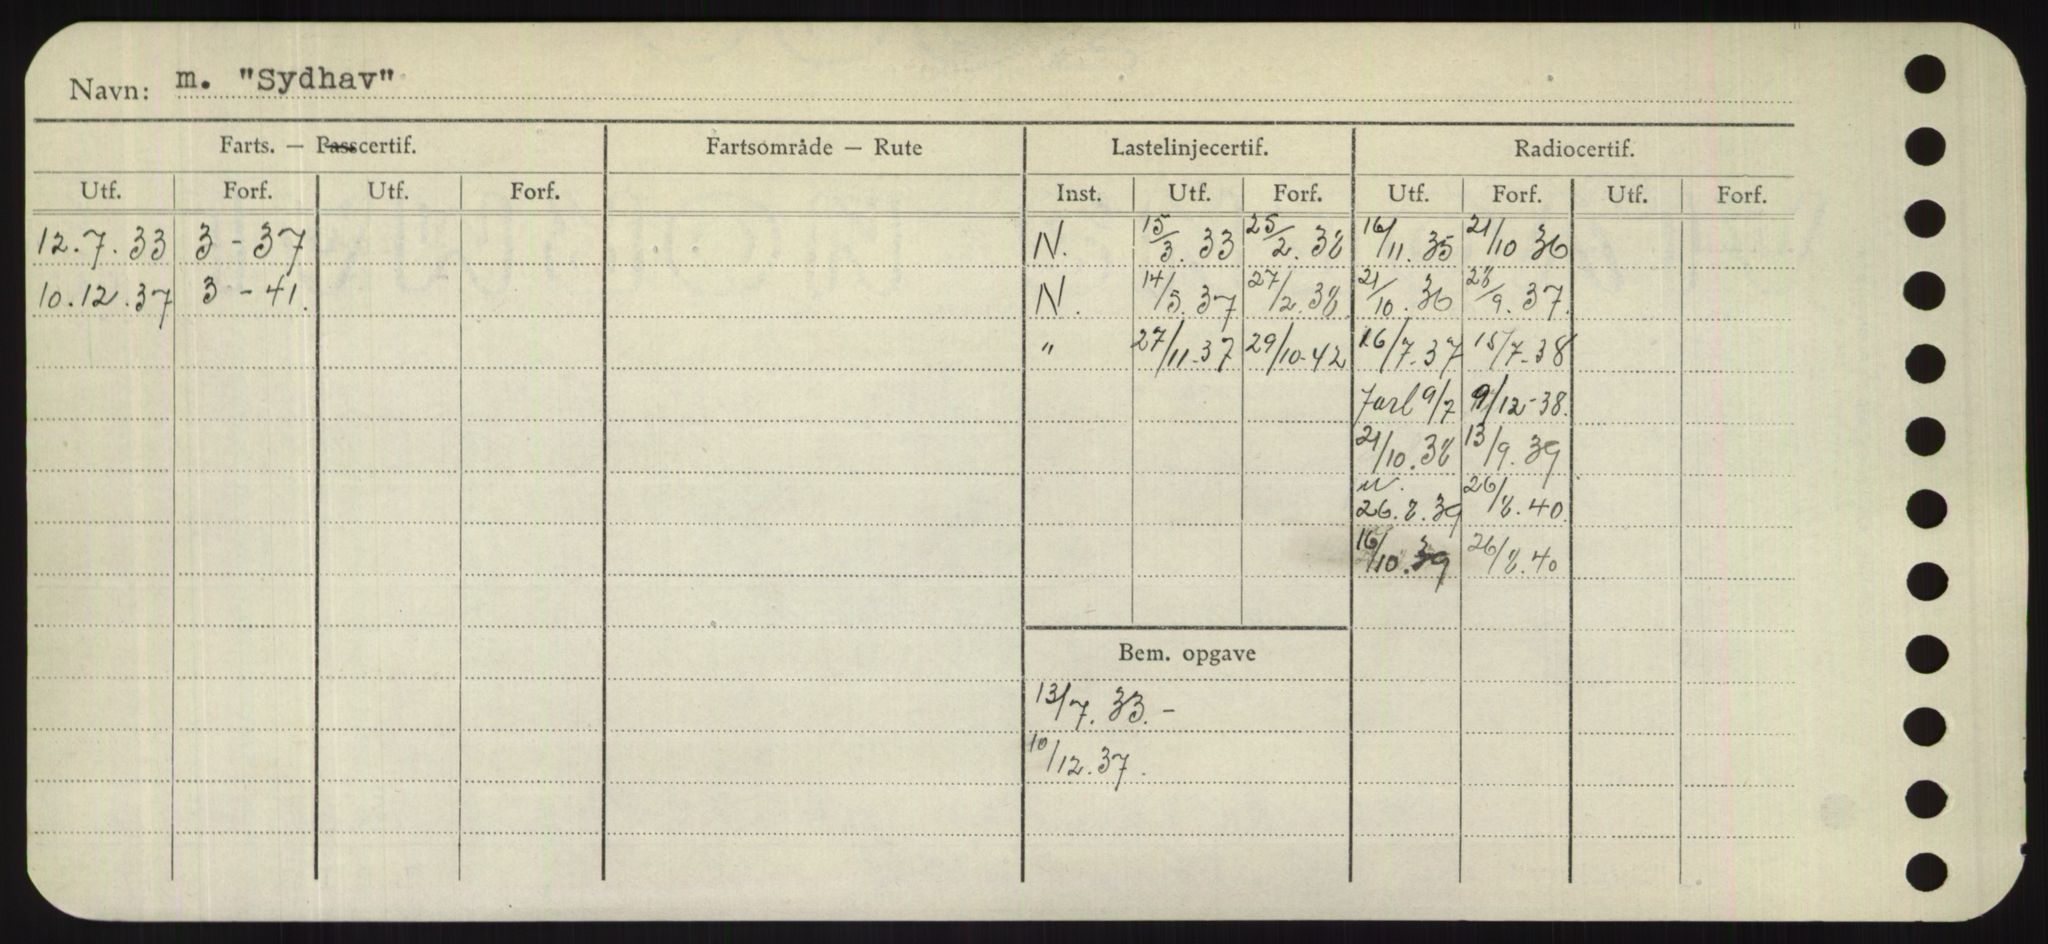 Navn: m. "Sydhav"
Farts. — Passcertif. Fartsområde — Rute Lastelinjecertif. Radiocertif.
Utf. Forf. Utf. Forf. Inst. Utf. Forf. Utf. Forf. Utf. Forf.
12.7.33 3 - 37 N. 15/3.33 25/2.38 16/11.35 21/10 36
10.12.37 3 - 41. N. 14/5.37 27/2.38. 21/10.36 28/9.37.
" 27/11-37 29/10-42 16/7.37 15/7-38
Forl 9/7 9/12-38.
21/10.38 13/9.39
N. 26.8.39 26/8.40.
16/10.39 26/8.40
Bem. opgave
13/7.33.-
10/12.37.